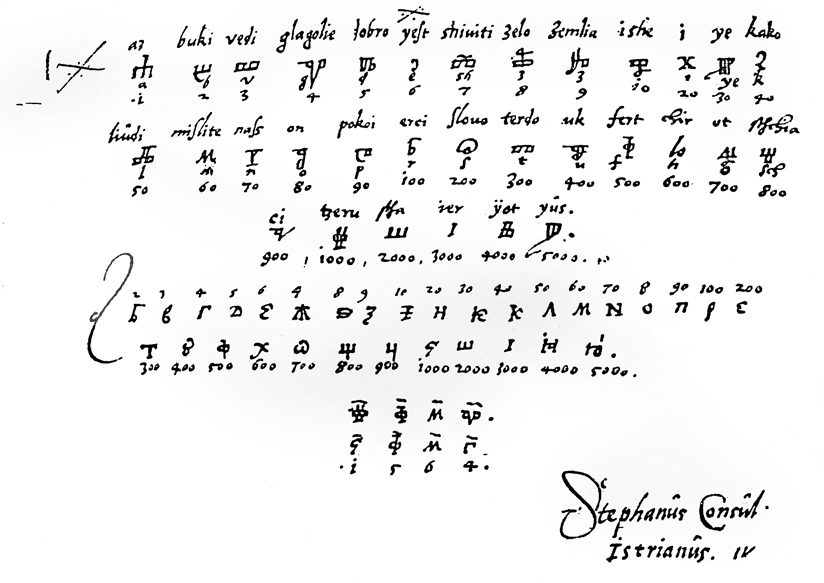 az buki vedi glagolie dobro yest shiviti zelo zemlia ishe i ye kako
Ⰰ Ⰱ Ⰲ Ⰳ Ⰴ Ⰵ Ⰶ Ⰷ Ⰸ Ⰻ Ⰹ Ⰼ Ⰽ
a b v g d e sh z z i ye k
·i 2 3 4 5 6 7 8 9 io 20 30 40
liûdi mislite nass on pokoi erci slovo terdo uk fert chir ot
Ⰾ Ⰿ Ⱀ Ⱁ Ⱂ Ⱃ Ⱄ Ⱅ Ⱆ Ⱇ Ⱈ Ⱉ Ⱋ
l m n o p r s t u f h
50 60 70 80 90 ioo 200 300 400 500 600 700 800
ci ier ÿot yûs.
Ⱌ Ⱍ Ⱎ I Ⱑ Ⱓ.
900, 1000, 2000, 3000 4000 5000.
2 3 4 5 6 4 8 9 10 20 30 40 50 60 70 8 90 100 200
Б В Г Д Є Ж З Н К К Л М N О П Р С
Т Ȣ Ф Х Ѡ Щ Ц Ч Ш І Ю.
300 400 500 600 700 800 900 1000 2000 3000 4000 5000.
Ⱍ Ⱇ Ⰿ Ⰳ.
Ч Ф М Г
·i 5 6 4·
Stephanûs Consûl·
Istrianûs.